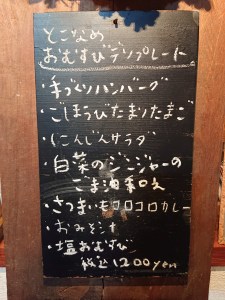 とこなめ
おむすびデリプレート
・手づくりハンバーグ
・ごほうびたまりたまご
・にんじんサラダ
・白菜のジンジャーの
ごま油和え
・さつまいもコロコロカレー
・おみそ汁
・塩おむすび
税込1200yen